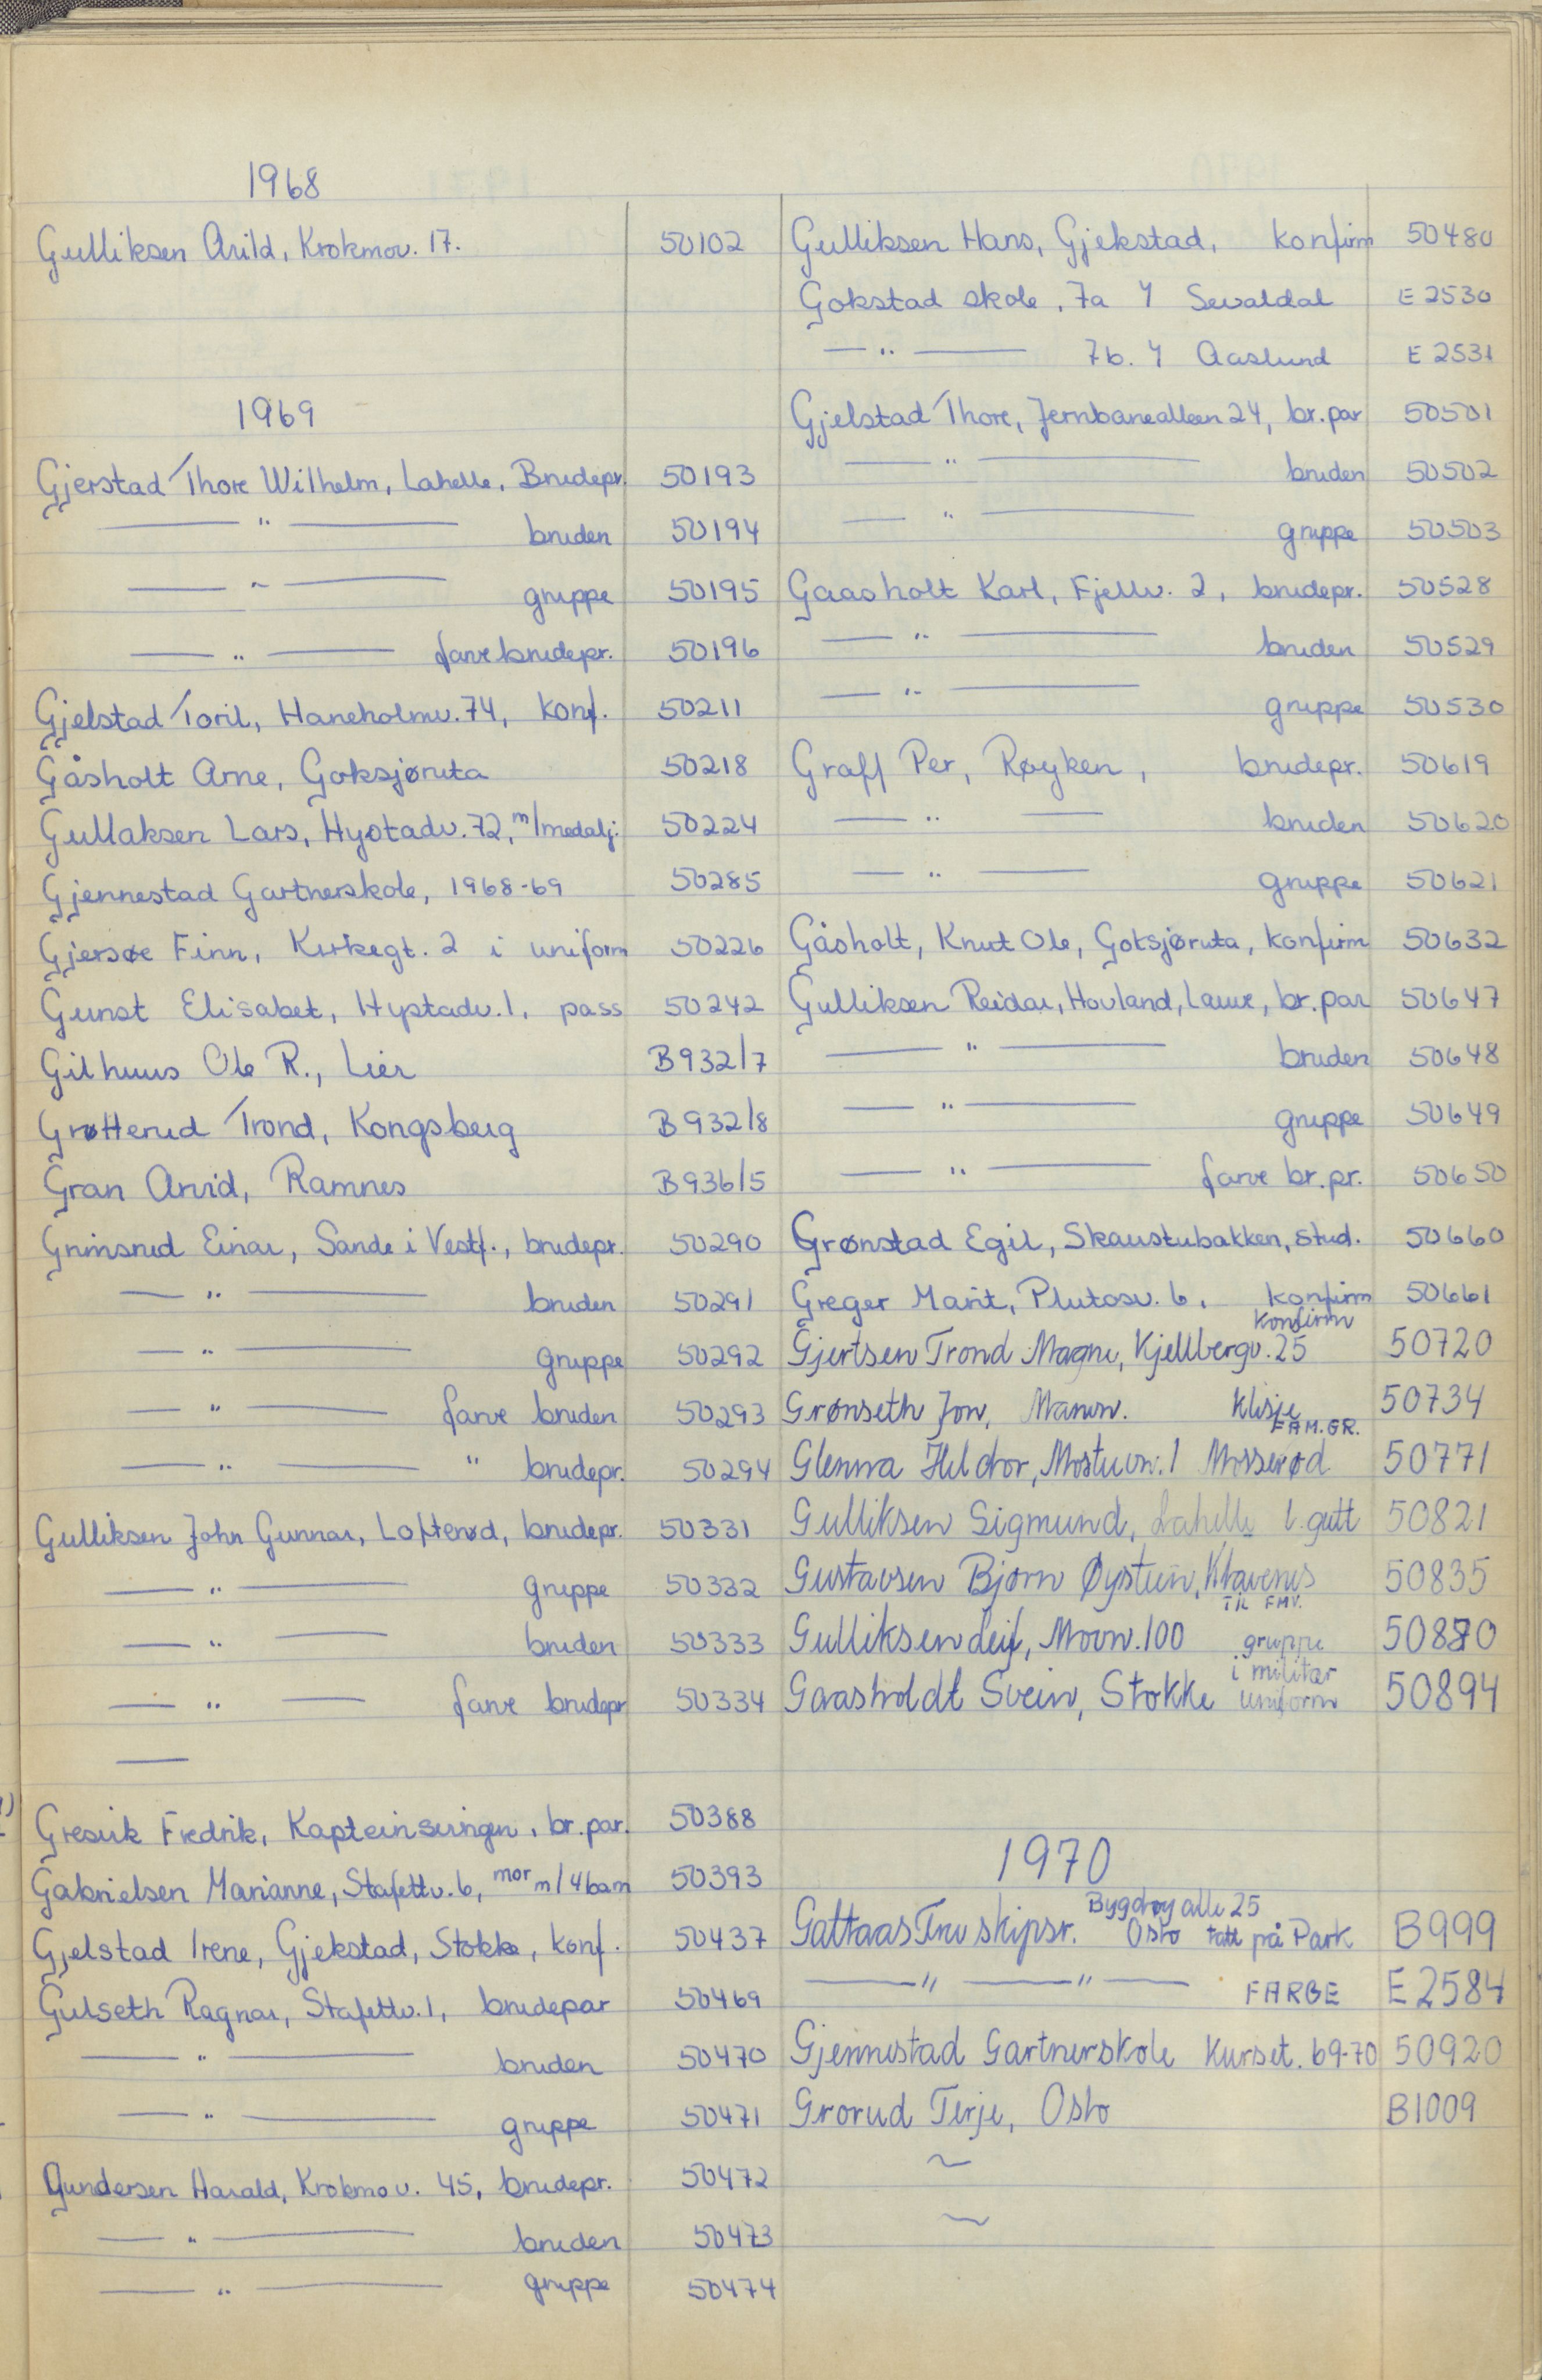 1968
Gulliksen Arild, Krokmov. 17. 50102
1969
Gjerstad Thore Wilhelm, Lahelle, Brudepr. 50193
— " — bruden 50194
— " — gruppe 50195
— " — farve brudepr. 50196
Gjelstad Toril, Haneholmv. 74, konf. 50211
Gåsholt Arne, Goksjøruta 50218
Gullaksen Lars, Hystadv. 72, m/medalj. 50224
Gjennestad Gartnerskole, 1968-69 50285
Gjersøe Finn, Kirkegt. 2 i uniform 50226
Gunst Elisabet, Hystadv. 1, pass 50242
Gilhuus Ole R., Lier B932/7
Grøtterud Trond, Kongsberg B932/8
Gran Arvid, Ramnes B936/5
Grimsrud Einar, Sande i Vestf., brudepr. 50290
— " — bruden 50291
— " — gruppe 50292
— " — farve bruden 50293
— " — " brudepr. 50294
Gulliksen John Gunnar, Lofterød, brudepr. 50331
— " — gruppe 50332
— " — bruden 50333
— " — farve brudepr 50334
—
Gresvik Fredrik, Kapteinsvingen, br.par. 50388
Gabrielsen Marianne, Stafettv. 6, mor m/4 barn 50393
Gjelstad Irene, Gjekstad, Stokke, konf. 50437
Gulseth Ragnar, Stafettv. 1, brudepar 50469
— " — bruden 50470
— " — gruppe 50471
Gundersen Harald, Krokmov. 45, brudepr. 50472
— " — bruden 50473
— " — gruppe 50474
Gulliksen Hans, Gjekstad, konfirm 50480
Gokstad skole, 7a Y Sevaldal E 2530
— " — 7b. Y Aaslund E 2531
Gjelstad Thore, Jernbanealleen 24, br.par 50501
— " — bruden 50502
— " — gruppe 50503
Gaasholt Karl, Fjellv. 2, brudepr. 50528
— " — bruden 50529
— " — gruppe 50530
Graff Per, Røyken, brudepr. 50619
— " — bruden 50620
— " — gruppe 50621
Gåsholt, Knut Ole, Goksjøruta, konfirm 50632
Gulliksen Reidar, Hovland, Lauve, br.par 50647
— " — bruden 50648
— " — gruppe 50649
— " — farve br.pr. 50650
Grønstad Egil, Skaustubakken, stud. 50660
Greger Marit, Plutosv. 6, konfirm 50661
konfirm
Gjertsen Trond Magne, Kjellbergv. 25 50720
Grønseth Jon, klisje 50734
FAM.GR.
Glenna Heldor, Mostuvn. 1 Mosserød 50771
Gulliksen Sigmund, Lahelle l. gutt 50821
Gustavsen Bjørn Øystein, Klavenes 50835
TIL FMV.
Gulliksen Leif, Movn. 100 gruppe 50880
i militær
Gaasholdt Svein, Stokke uniform 50894
1970
Bygdøy alle 25
Gattaas Tru skipsr. Oslo tatt på Park B999
— " — " — FARBE E2584
Gjennestad Gartnerskole Kurset. 69-70 50920
Grorud Terje, Oslo B1009
~
~